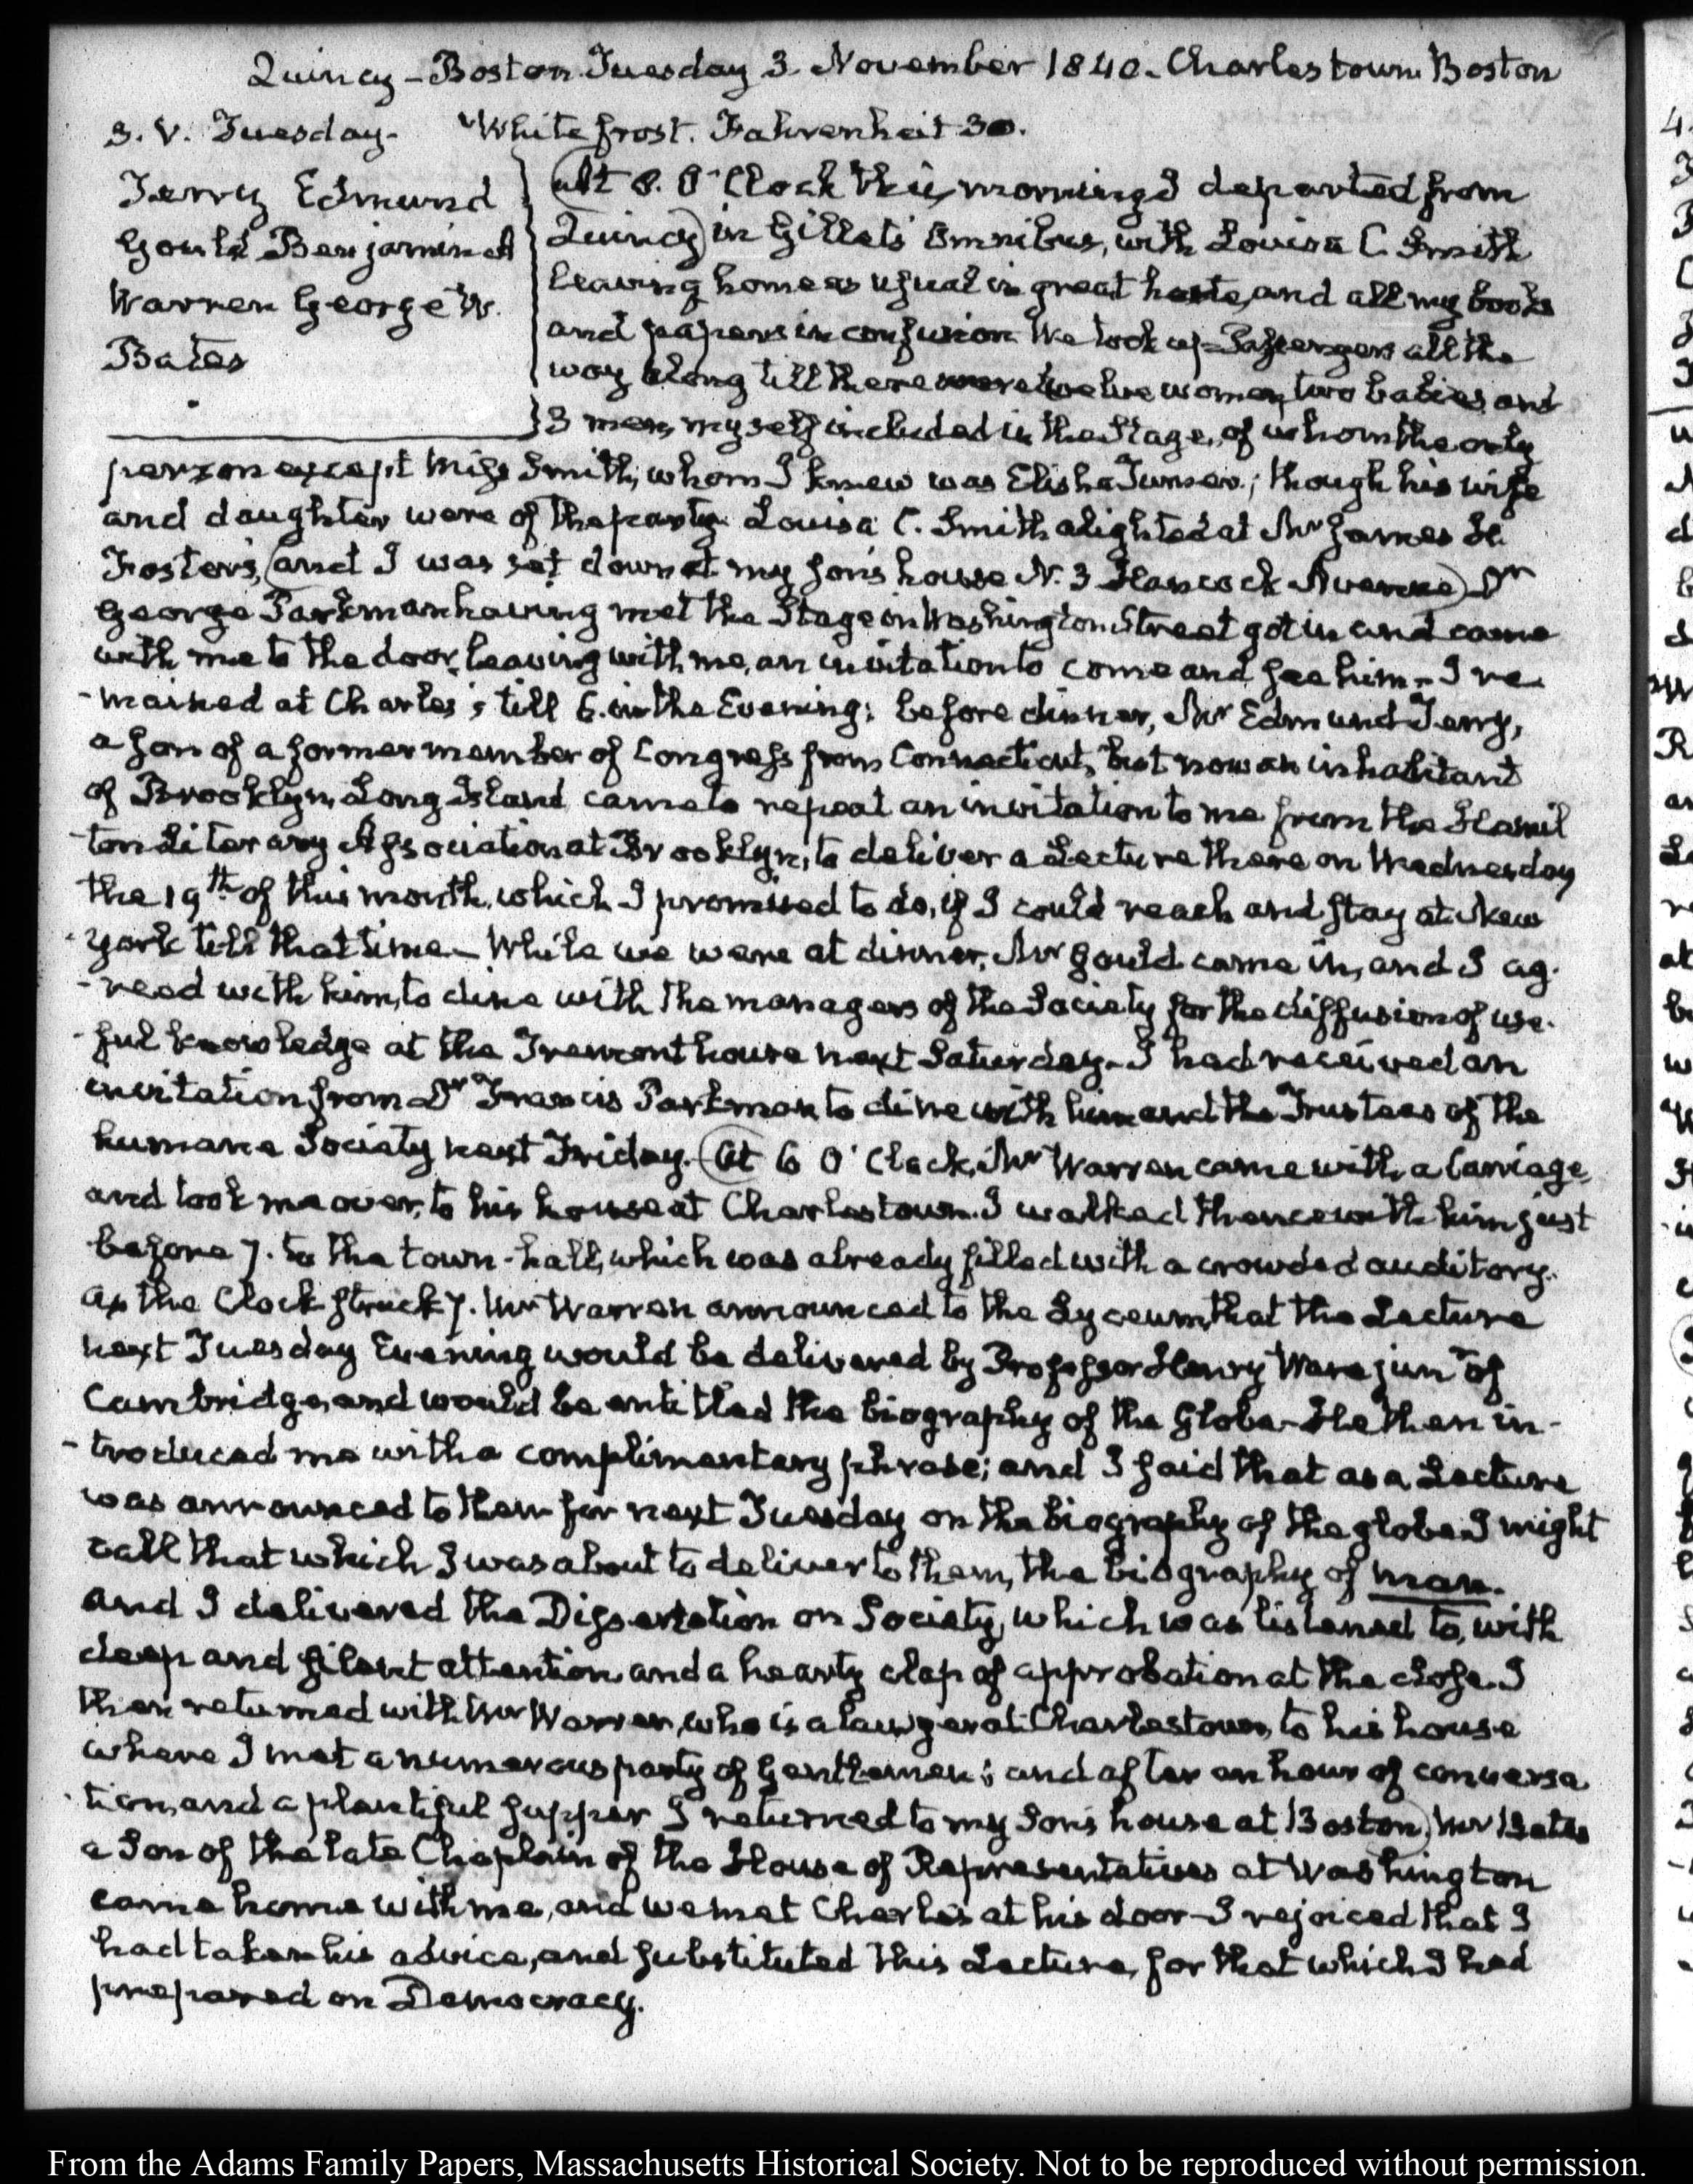 Quincy – Boston Tuesday 3. November 1840. Charlestown Boston
3. V. Tuesday. White frost. Fahrenheit 30.
Terry Edmund
Gould Benjamin A
Warren George W.
Bates
At 8. O'Clock this morning I departed from
Quincy) in Gillet's Omnibus, with Louisa C. Smith
leaving home as usual in great haste, and all my books
and papers in confusion. We took up Passengers all the
way along till there were twelve women, two babies and
3 men, myself included in the Stage, of whom the only
person except Miss Smith, whom I knew was Elisha Turner; though his wife
and daughter were of the party. Louisa C. Smith alighted at Mr James H.
Foster's, (and I was set down at my son's house N. 3 Hancock Avenue) Dr
George Parkman having met the Stage in Washington Street got in and came
with me to the door, leaving with me, an invitation to come and see him – I re-
-mained at Charles's till 6. in the Evening; before dinner, Mr Edmund Terry,
a son of a former member of Congress from Connecticut, but now an inhabitant
of Brooklyn, Long Island came to repeat an invitation to me from the Hamil
-ton Literary Association at Brooklyn, to deliver a Lecture there on Wednesday
the 19th of this month, which I promised to do, if I could reach and stay at New
-York till that time – While we were at dinner, Mr Gould came in, and I ag-
-reed with him, to dine with the managers of the Society for the diffusion of use-
-ful knowledge at the Tremont house next Saturday – I had received an
invitation from Dr Francis Parkman to dine with him and the Trustees of the
humane Society next Friday. (At 6 O'Clock, Mr Warren came with a Carriage,
and took me over, to his house at Charlestown. I walked thence with him just
before 7. to the town-hall, which was already filled with a crowded auditory.
As the Clock struck 7. Mr Warren announced to the Lyceum that the Lecture
next Tuesday Evening would be delivered by Professor Henry Ware junr of
Cambridge, and would be entitled the biography of the Globe – He then in-
-troduced me with a complimentary phrase; and I said that as a Lecture
was announced to them for next Tuesday on the biography of the globe I might
call that which I was about to deliver to them, the biography of man.
And I delivered the Dissertation on Society, which was listened to, with
deep and silent attention and a hearty clap of approbation at the close. I
then returned with Mr Warren, who is a lawyer at Charlestown, to his house
where I met a numerous party of Gentlemen; and after an hour of conversa
-tion, and a plentiful supper I returned to my Son's house at Boston) Mr Bates
a Son of the late Chaplain of the House of Representatives at Washington
came home with me, and we met Charles at his door – I rejoiced that I
had taken his advice, and substituted this Lecture, for that which I had
prepared on Democracy.
From the Adams Family Papers, Massachusetts Historical Society. Not to be reproduced without permission.